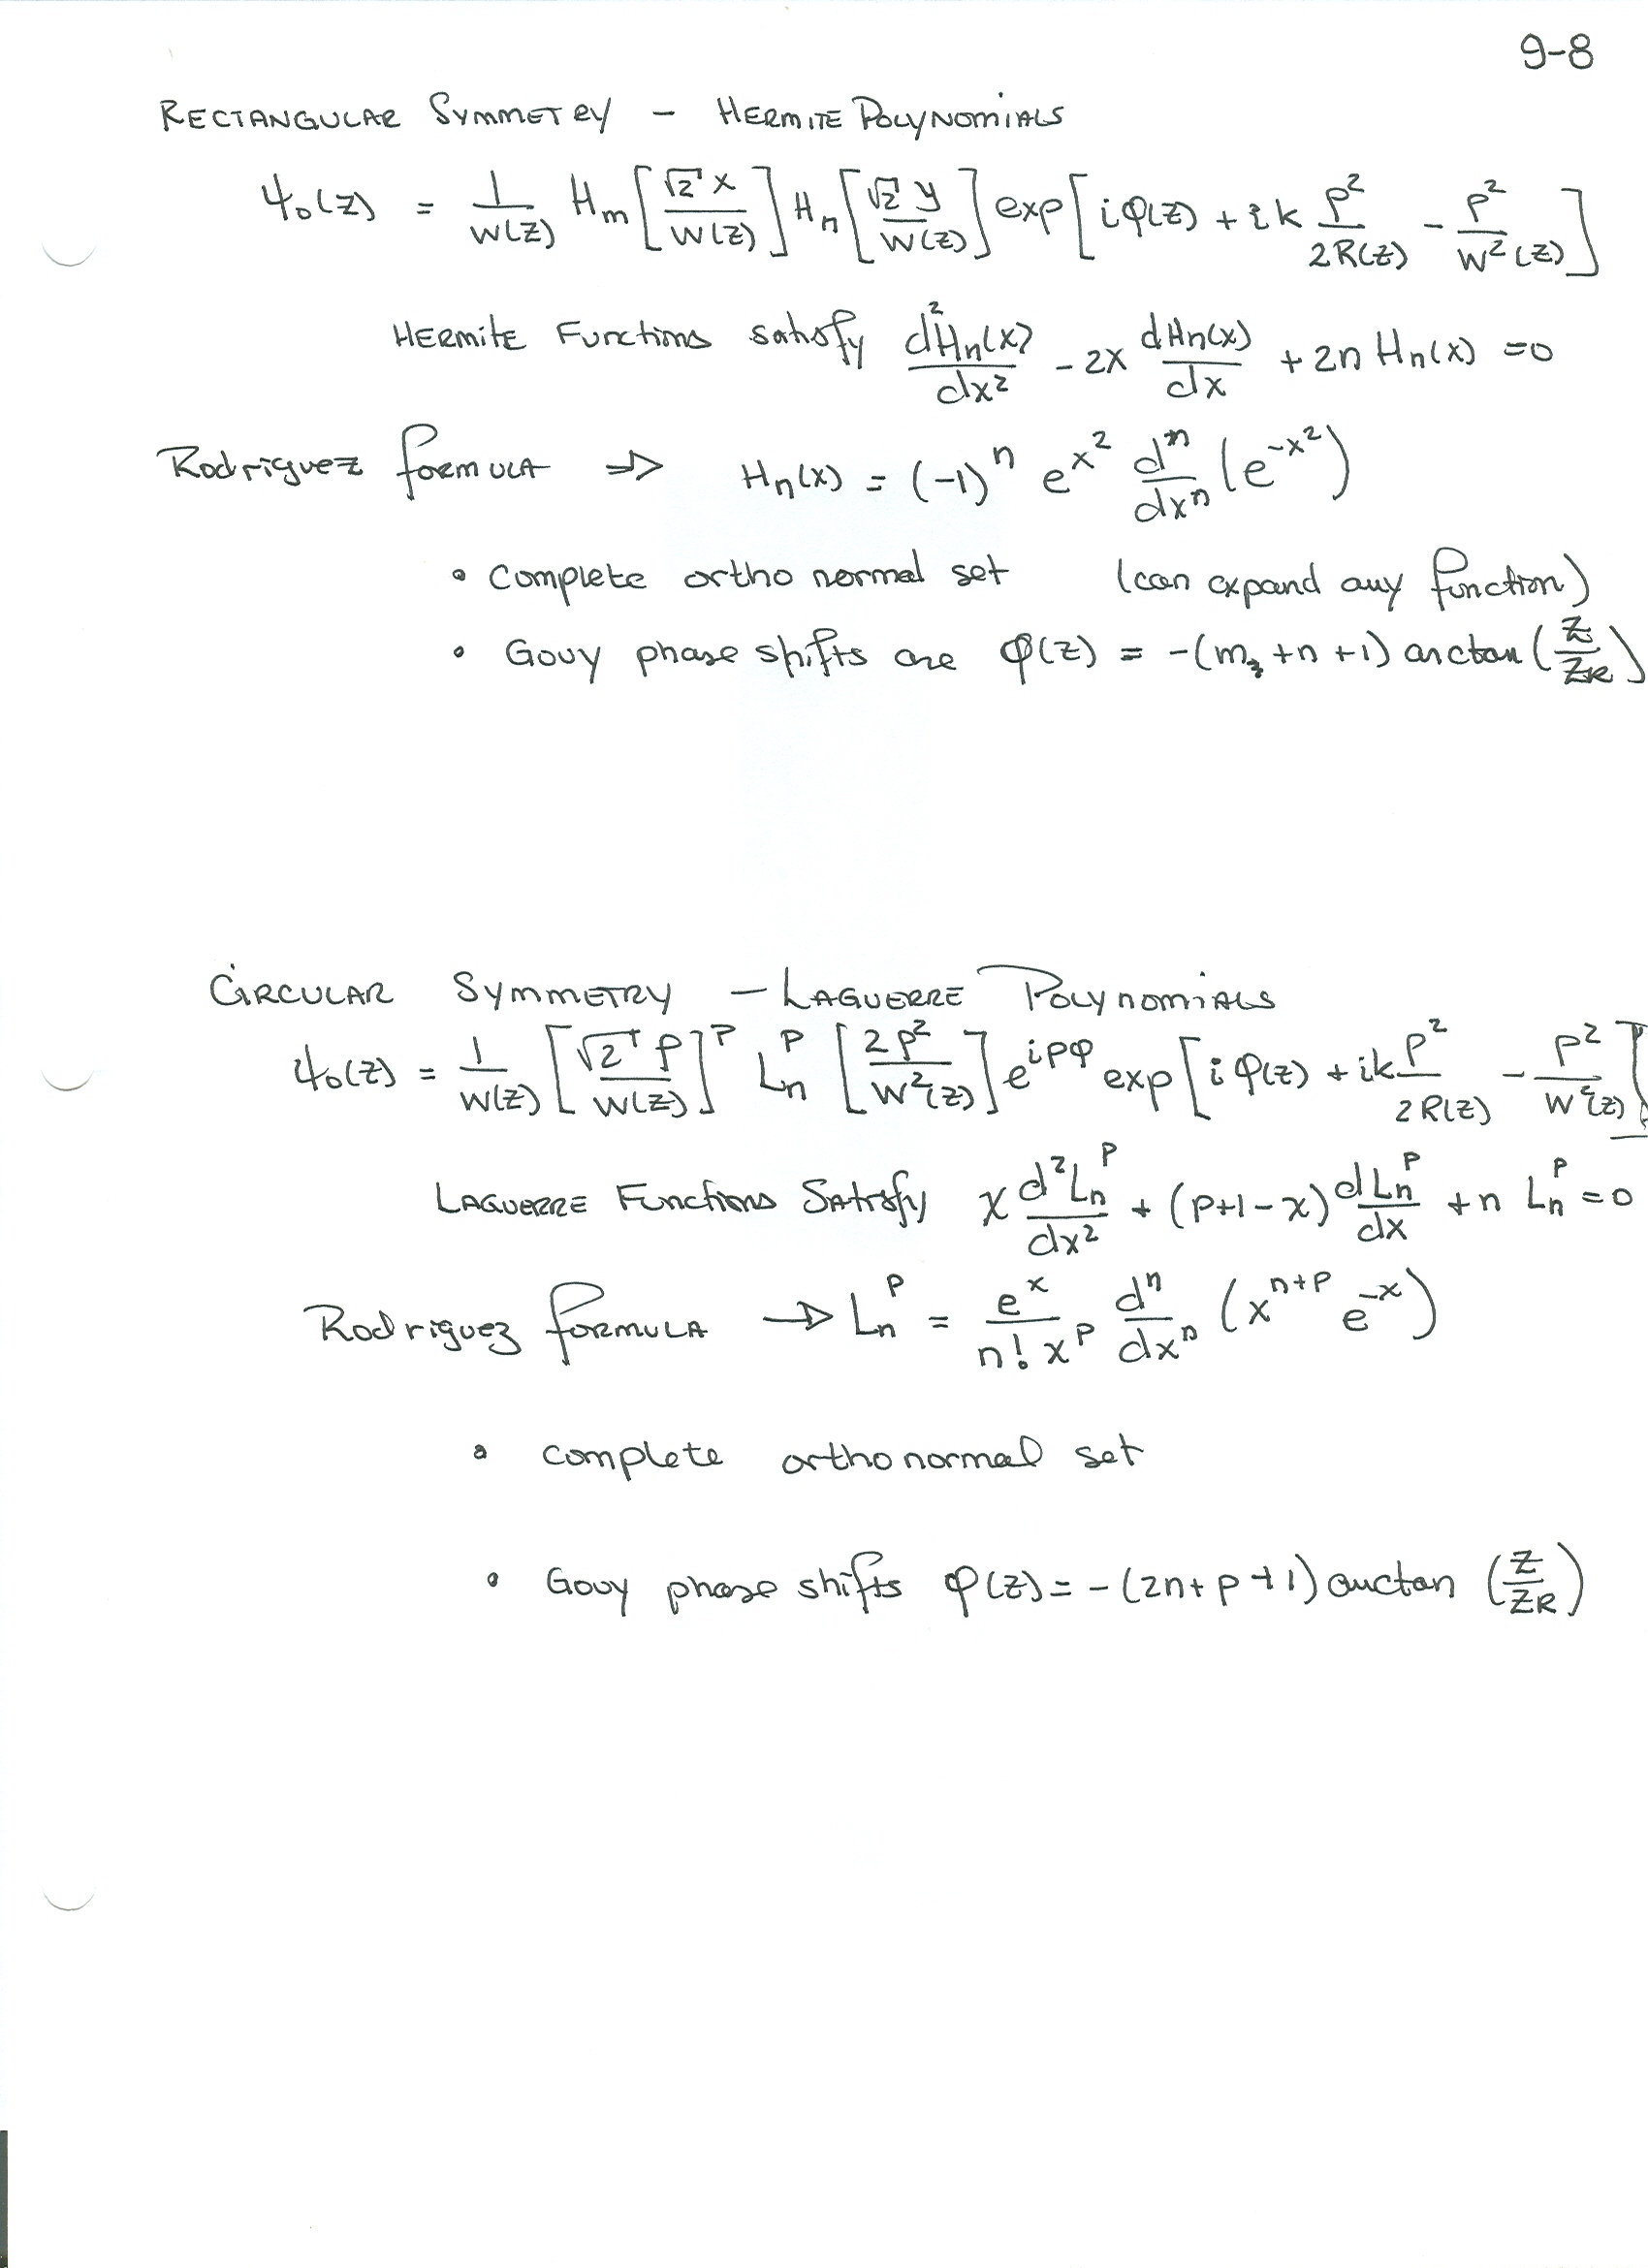 9-8
RECTANGULAR SYMMETRY - HERMITE POLYNOMIALS
ψ₀(z) = 1/W(z) Hm[√2 x / W(z)] Hn[√2 y / W(z)] exp[iφ(z) + ik ρ²/2R(z) - ρ²/W²(z)]
HERMITE Functions satisfy d²Hn(x)/dx² - 2x dHn(x)/dx + 2n Hn(x) = 0
Rodriguez formULA ⇒ Hn(x) = (-1)ⁿ e^x² dⁿ/dxⁿ (e^-x²)
• Complete ortho normal set (can expand any function)
• Gouy phase shifts are φ(z) = -(m + n + 1) arctan(z/zR)
CIRCULAR SYMMETRY - LAGUERRE POLYNOMIALS
ψ₀(z) = 1/W(z) [√2 ρ / W(z)]^p Ln^p [2ρ²/W²(z)] e^ipφ exp[iφ(z) + ik ρ²/2R(z) - ρ²/W²(z)]
LAGUERRE Functions Satisfy x d²Ln^p/dx² + (p+1-x) dLn^p/dx + n Ln^p = 0
Rodriguez formULA → Ln^p = e^x/(n! x^p) dⁿ/dxⁿ (x^(n+p) e^-x)
• complete orthonormal set
• Gouy phase shifts φ(z) = -(2n + p + 1) arctan (z/zR)